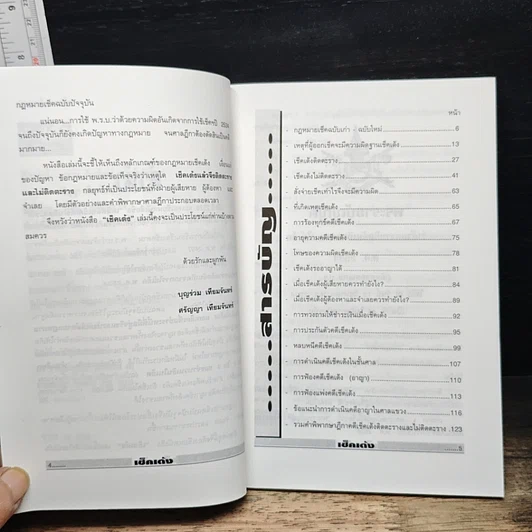 กฎหมายเช็คฉบับปัจจุบัน
แน่นอน...การใช้ พ.ร.บ.ว่าด้วยความผิดอันเกิดจากการใช้เช็คปี 2534
จนถึงปัจจุบันก็ยังคงเกิดปัญหาทางกฎหมาย จนศาลฎีกาต้องตัดสินเป็นคดี
มากมาย...
หนังสือเล่มนี้จะชี้ให้เห็นถึงหลักเกณฑ์ของกฎหมายเช็คเด้ง
ของปัญหา ข้อกฎหมายและข้อเท็จจริงว่าเหตุใด เช็คเด้งแล้วจึงติดตะราง
และไม่ติดตะราง กลยุทธ์ที่เป็นประโยชน์ทั้งฝ่ายผู้เสียหาย ผู้ต้องหา และ
จำเลย โดยมีตัวอย่างและคำพิพากษาศาลฎีกาประกอบตลอดเวลา
จึงหวังว่าหนังสือ "เช็คเด้ง" เล่มนี้คงจะเป็นประโยชน์แก่ท่านผู้อ่านตาม
สมควร
ด้วยรักและผูกพัน
บุญร่วม เทียมจันทร์
ศรัญญา เทียมจันทร์
4
เช็คเด้ง
สารบัญ
หน้า
- กฎหมายเช็คฉบับเก่า - ฉบับใหม่ 6
- เหตุที่ผู้ออกเช็คจะมีความผิดฐานเช็คเด้ง 13
- เช็คเด้งติดตะราง 27
- เช็คเด้งไม่ติดตะราง 41
- สั่งจ่ายเช็คเท่าไรจึงจะมีความผิด 54
- ที่เกิดเหตุเช็คเด้ง 65
- การร้องทุกข์คดีเช็คเด้ง 67
- อายุความคดีเช็คเด้ง 75
- โทษของความผิดเช็คเด้ง 78
- เช็คเด้งรออาญาได้ 81
- เมื่อเช็คเด้งผู้เสียหายควรทำยังไง? 84
- เมื่อเช็คเด้งผู้ต้องหาและจำเลยควรทำยังไง? 89
- การทวงถามให้ชำระเงินเมื่อเช็คเด้ง 92
- การประกันตัวคดีเช็คเด้ง 95
- หลบหนีคดีเช็คเด้ง 99
- การดำเนินคดีเช็คเด้งในชั้นศาล 107
- การฟ้องคดีเช็คเด้ง (อาญา) 110
- การฟ้องแพ่งคดีเช็คเด้ง 113
- ข้อแนะนำการดำเนินคดีอาญาในศาลแขวง 116
- รวมคำพิพากษาฎีกาคดีเช็คเด้งติดตะรางและไม่ติดตะราง 123
เช็คเด้ง
5